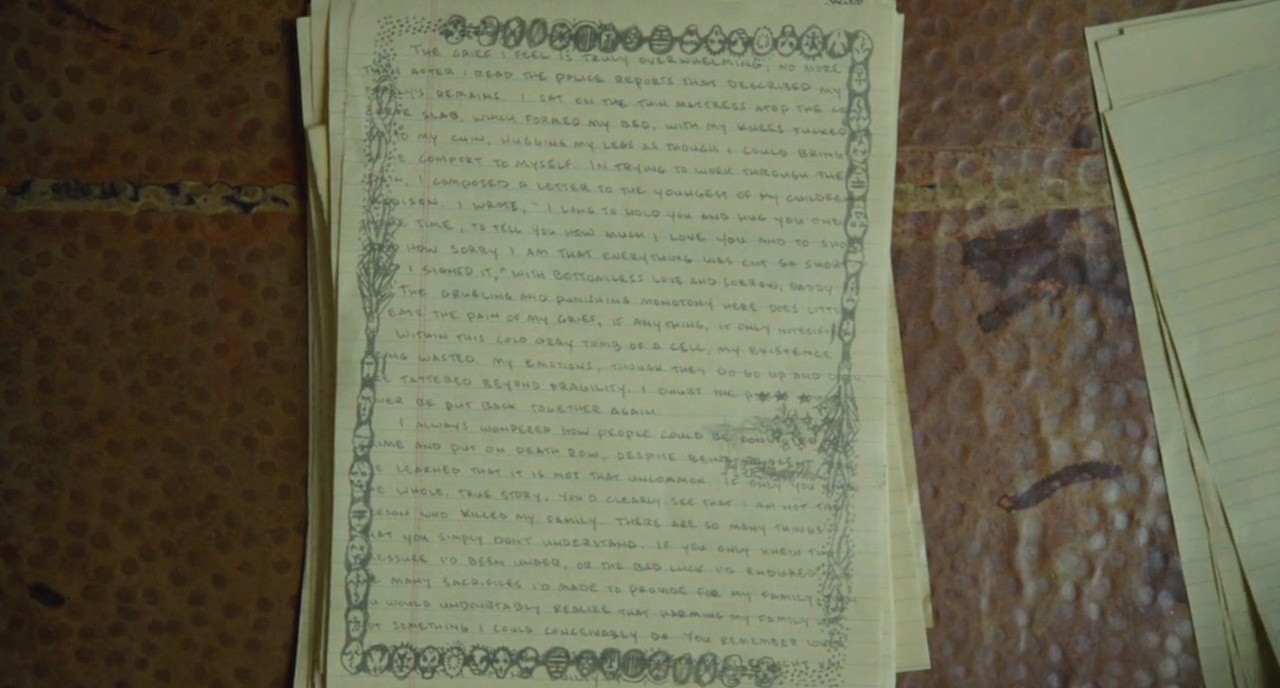 THE GRIEF I FEEL IS TRULY OVERWHELMING; NO MORE
AFTER I READ THE POLICE REPORTS THAT DESCRIBED MY
REMAINS. I SAT ON THE THIN MATTRESS ATOP THE
SLAB, WHICH FORMED MY BED, WITH MY KNEES TUCKED
TO MY CHIN, HUGGING MY LEGS AS THOUGH I COULD BRING
COMFORT TO MYSELF. IN TRYING TO WORK THROUGH THE
I COMPOSED A LETTER TO THE YOUNGEST OF MY CHILDREN
I WROTE, "I LONG TO HOLD YOU AND HUG YOU ONE
TIME, TO TELL YOU HOW MUCH I LOVE YOU AND TO
HOW SORRY I AM THAT EVERYTHING WAS CUT SO SHORT
I SIGNED IT, "WITH BOTTOMLESS LOVE AND SORROW, DADDY
THE GRUELING AND PUNISHING MONOTONY HERE DOES
EASE THE PAIN OF MY GRIEF, IF ANYTHING, IT ONLY
WITHIN THIS COLD GRAY TOMB OF A CELL, MY EXISTENCE
WASTED. MY EMOTIONS, THOUGH THEY DO GO UP AND
TATTERED BEYOND FRAGILITY. I DOUBT THE
BE PUT BACK TOGETHER AGAIN.
I ALWAYS WONDERED HOW PEOPLE COULD BE
AND PUT ON DEATH ROW, DESPITE BEING
LEARNED THAT IT IS NOT THAT UNCOMMON. IF ONLY YOU
WHOLE, TRUE STORY, YOU'D CLEARLY SEE THAT I AM NOT THE
WHO KILLED MY FAMILY. THERE ARE SO MANY THINGS
YOU SIMPLY DON'T UNDERSTAND. IF YOU ONLY KNEW THE
I'D BEEN UNDER, OR THE BAD LUCK I'D ENDURED
MANY SACRIFICES I'D MADE TO PROVIDE FOR MY FAMILY
WOULD UNDOUBTABLY REALIZE THAT HARMING MY FAMILY
SOMETHING I COULD CONCEIVABLY DO. YOU REMEMBER